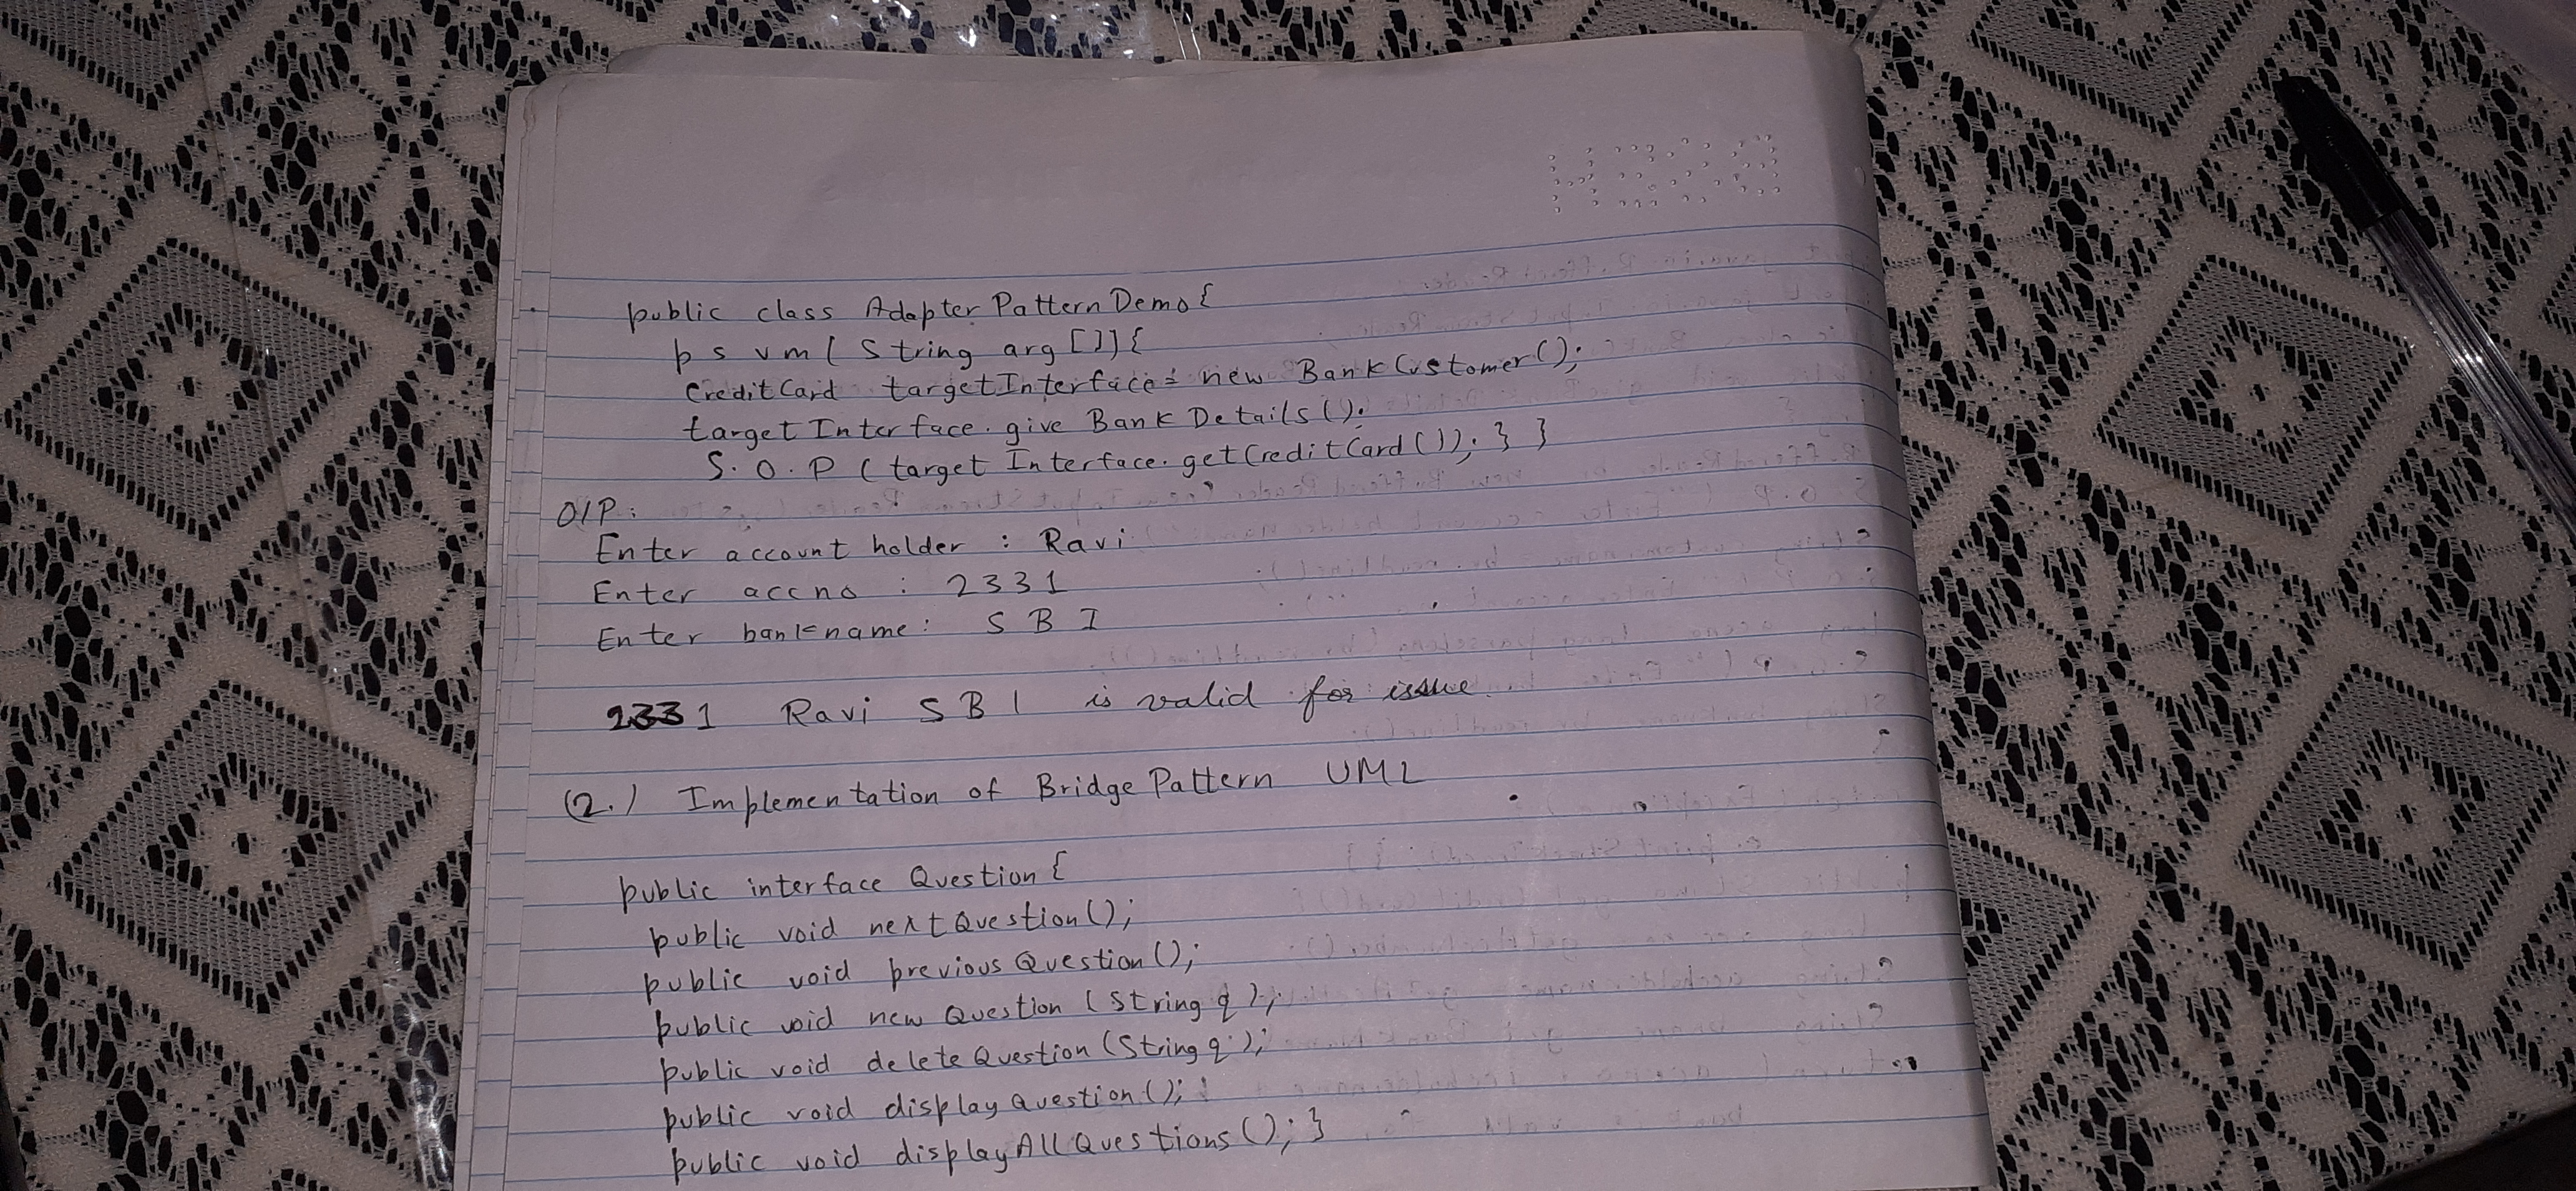 public class AdapterPatternDemo{
p s v m ( String arg []){
CreditCard targetInterface= new BankCustomer();
targetInterface.giveBankDetails();
S.O.P (targetInterface.getCreditCard()); } }
O/P:
Enter account holder : Ravi
Enter accno : 2331
Enter bankname: SBI
2331 Ravi SBI is valid for issue.
(2.) Implementation of Bridge Pattern UML
public interface Question{
public void nextQuestion();
public void previousQuestion();
public void newQuestion (String q);
public void deleteQuestion (String q);
public void displayQuestion();
public void displayAllQuestions(); }